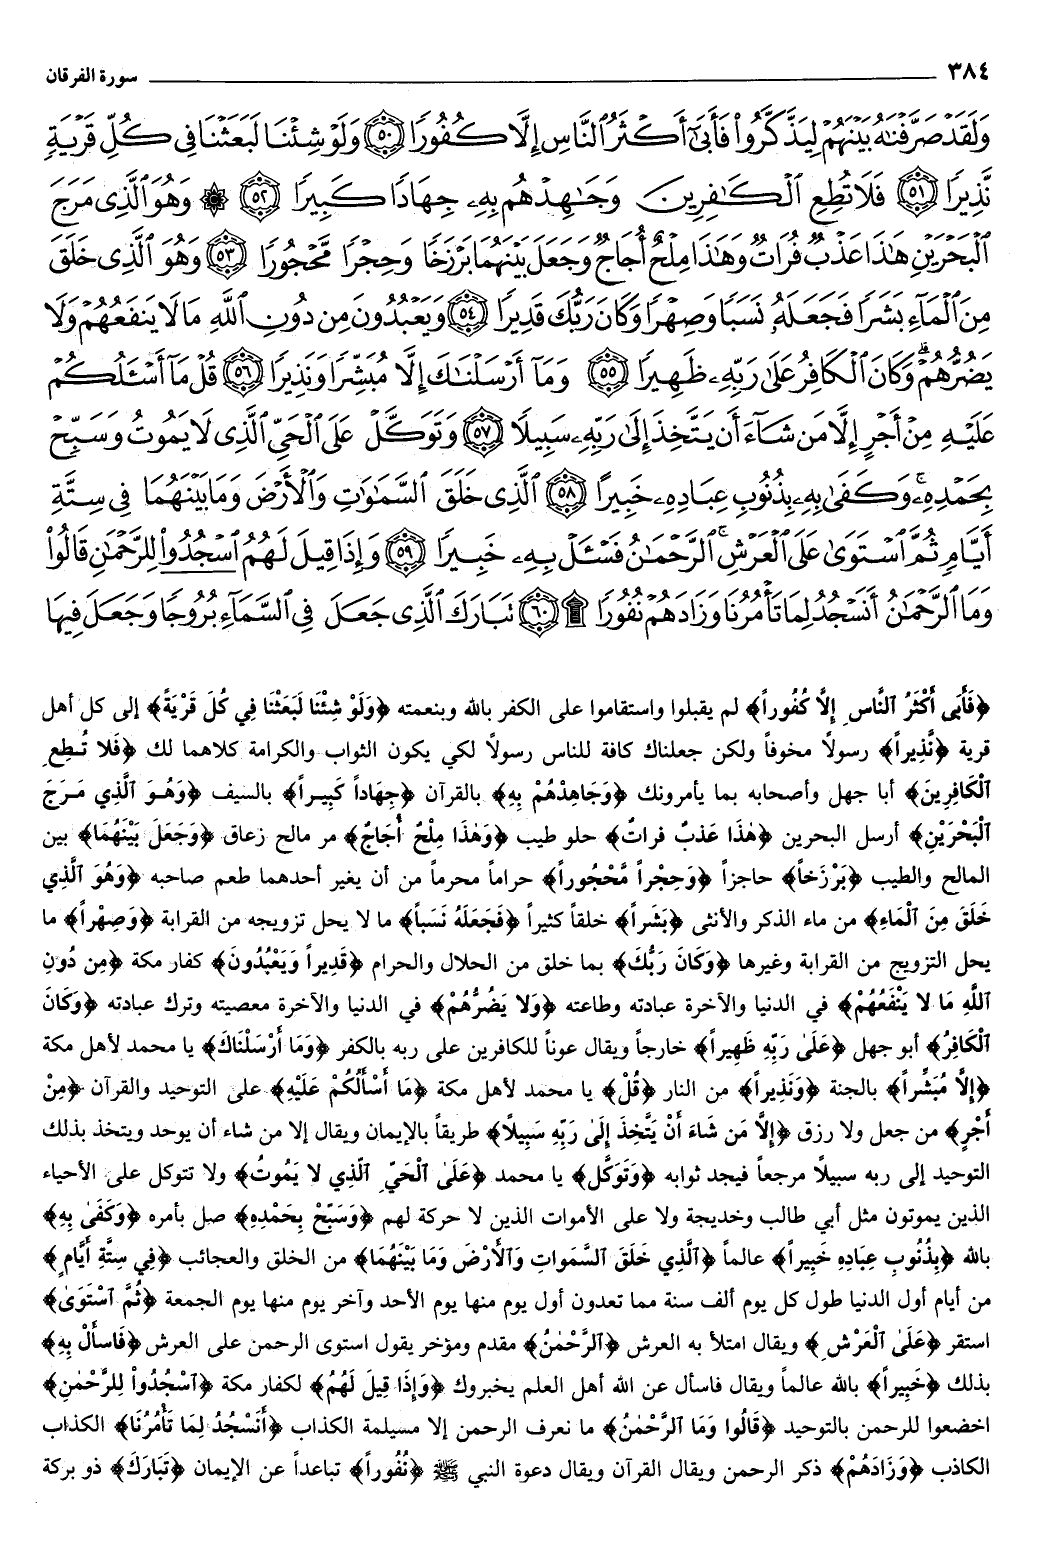 ٣٨٤ سورة الفرقان
وَلَقَدْ صَرَّفْنَٰهُ بَيْنَهُمْ لِيَذَّكَّرُوا۟ فَأَبَىٰٓ أَكْثَرُ ٱلنَّاسِ إِلَّا كُفُورًا ٥٠ وَلَوْ شِئْنَا لَبَعَثْنَا فِى كُلِّ قَرْيَةٍ
نَّذِيرًا ٥١ فَلَا تُطِعِ ٱلْكَٰفِرِينَ وَجَٰهِدْهُم بِهِۦ جِهَادًا كَبِيرًا ٥٢ ۞ وَهُوَ ٱلَّذِى مَرَجَ
ٱلْبَحْرَيْنِ هَٰذَا عَذْبٌ فُرَاتٌ وَهَٰذَا مِلْحٌ أُجَاجٌ وَجَعَلَ بَيْنَهُمَا بَرْزَخًا وَحِجْرًا مَّحْجُورًا ٥٣ وَهُوَ ٱلَّذِى خَلَقَ
مِنَ ٱلْمَآءِ بَشَرًا فَجَعَلَهُۥ نَسَبًا وَصِهْرًا وَكَانَ رَبُّكَ قَدِيرًا ٥٤ وَيَعْبُدُونَ مِن دُونِ ٱللَّهِ مَا لَا يَنفَعُهُمْ وَلَا
يَضُرُّهُمْ ۗ وَكَانَ ٱلْكَافِرُ عَلَىٰ رَبِّهِۦ ظَهِيرًا ٥٥ وَمَآ أَرْسَلْنَٰكَ إِلَّا مُبَشِّرًا وَنَذِيرًا ٥٦ قُلْ مَآ أَسْـَٔلُكُمْ
عَلَيْهِ مِنْ أَجْرٍ إِلَّا مَن شَآءَ أَن يَتَّخِذَ إِلَىٰ رَبِّهِۦ سَبِيلًا ٥٧ وَتَوَكَّلْ عَلَى ٱلْحَىِّ ٱلَّذِى لَا يَمُوتُ وَسَبِّحْ
بِحَمْدِهِۦ ۚ وَكَفَىٰ بِهِۦ بِذُنُوبِ عِبَادِهِۦ خَبِيرًا ٥٨ ٱلَّذِى خَلَقَ ٱلسَّمَٰوَٰتِ وَٱلْأَرْضَ وَمَا بَيْنَهُمَا فِى سِتَّةِ
أَيَّامٍ ثُمَّ ٱسْتَوَىٰ عَلَى ٱلْعَرْشِ ۚ ٱلرَّحْمَٰنُ فَسْـَٔلْ بِهِۦ خَبِيرًا ٥٩ وَإِذَا قِيلَ لَهُمُ ٱسْجُدُوا۟ لِلرَّحْمَٰنِ قَالُوا۟
وَمَا ٱلرَّحْمَٰنُ أَنَسْجُدُ لِمَا تَأْمُرُنَا وَزَادَهُمْ نُفُورًا ۩ ٦٠ تَبَارَكَ ٱلَّذِى جَعَلَ فِى ٱلسَّمَآءِ بُرُوجًا وَجَعَلَ فِيهَا
﴿فَأَبَى أَكْثَرُ ٱلنَّاسِ إِلَّا كُفُوراً﴾ لم يقبلوا واستقاموا على الكفر بالله وبنعمته ﴿وَلَوْ شِئْنَا لَبَعَثْنَا فِي كُلِّ قَرْيَةً﴾ إلى كل أهل
قرية ﴿نَّذِيراً﴾ رسولاً مخوفاً ولكن جعلناك كافة للناس رسولاً لكي يكون الثواب والكرامة كلاهما لك ﴿فَلا تُطِعِ
ٱلْكَافِرِينَ﴾ أبا جهل وأصحابه بما يأمرونك ﴿وَجَاهِدْهُمْ بِهِ﴾ بالقرآن ﴿جِهَاداً كَبِيراً﴾ بالسيف ﴿وَهُوَ ٱلَّذِي مَرَجَ
ٱلْبَحْرَيْنِ﴾ أرسل البحرين ﴿هٰذَا عَذْبٌ فراتٌ﴾ حلو طيب ﴿وَهٰذَا مِلْحٌ أُجَاجٌ﴾ مر مالح زعاق ﴿وَجَعَلَ بَيْنَهُمَا﴾ بين
المالح والطيب ﴿بَرْزَخاً﴾ حاجزاً ﴿وَحِجْراً مَّحْجُوراً﴾ حراماً محرماً من أن يغير أحدهما طعم صاحبه ﴿وَهُوَ ٱلَّذِي
خَلَقَ مِنَ ٱلْمَاءِ﴾ من ماء الذكر والأنثى ﴿بَشَراً﴾ خلقاً كثيراً ﴿فَجَعَلَهُ نَسَباً﴾ ما لا يحل تزويجه من القرابة ﴿وَصِهْراً﴾ ما
يحل التزويج من القرابة وغيرها ﴿وَكَانَ رَبُّكَ﴾ بما خلق من الحلال والحرام ﴿قَدِيراً وَيَعْبُدُونَ﴾ كفار مكة ﴿مِن دُونِ
ٱللَّهِ مَا لا يَنْفَعُهُمْ﴾ في الدنيا والآخرة عبادته وطاعته ﴿وَلا يَضُرُّهُمْ﴾ في الدنيا والآخرة معصيته وترك عبادته ﴿وَكَانَ
ٱلْكَافِرُ﴾ أبو جهل ﴿عَلَىٰ رَبِّهِ ظَهِيراً﴾ خارجاً ويقال عوناً للكافرين على ربه بالكفر ﴿وَمَا أَرْسَلْنَاكَ﴾ يا محمد لأهل مكة
﴿إِلَّا مُبَشِّراً﴾ بالجنة ﴿وَنَذِيراً﴾ من النار ﴿قُلْ﴾ يا محمد لأهل مكة ﴿مَا أَسْأَلُكُمْ عَلَيْهِ﴾ على التوحيد والقرآن ﴿مِنْ
أَجْرٍ﴾ من جعل ولا رزق ﴿إِلَّا مَن شَاءَ أَنْ يَتَّخِذَ إِلَىٰ رَبِّهِ سَبِيلًا﴾ طريقاً بالإيمان ويقال إلا من شاء أن يوحد ويتخذ بذلك
التوحيد إلى ربه سبيلاً مرجعاً فيجد ثوابه ﴿وَتَوَكَّل﴾ يا محمد ﴿عَلَىٰ ٱلْحَيِّ ٱلَّذِي لا يَمُوتُ﴾ ولا تتوكل على الأحياء
الذين يموتون مثل أبي طالب وخديجة ولا على الأموات الذين لا حركة لهم ﴿وَسَبِّحْ بِحَمْدِهِ﴾ صل بأمره ﴿وَكَفَىٰ بِهِ﴾
بالله ﴿بِذُنُوبِ عِبَادِهِ خَبِيراً﴾ عالماً ﴿ٱلَّذِي خَلَقَ ٱلسَّمَواتِ وَٱلْأَرْضَ وَمَا بَيْنَهُمَا﴾ من الخلق والعجائب ﴿فِي سِتَّةِ أَيَّامٍ﴾
من أيام أول الدنيا طول كل يوم ألف سنة مما تعدون أول يوم منها يوم الأحد وآخر يوم منها يوم الجمعة ﴿ثُمَّ ٱسْتَوَىٰ﴾
استقر ﴿عَلَىٰ ٱلْعَرْشِ﴾ ويقال امتلأ به العرش ﴿ٱلرَّحْمٰنُ﴾ مقدم ومؤخر يقول استوى الرحمن على العرش ﴿فَاسأَلْ بِهِ﴾
بذلك ﴿خَبِيراً﴾ بالله عالماً ويقال فاسأل عن الله أهل العلم يخبروك ﴿وَإِذَا قِيلَ لَهُمُ﴾ لكفار مكة ﴿ٱسْجُدُواْ لِلرَّحْمٰنِ﴾
اخضعوا للرحمن بالتوحيد ﴿قَالُوا وَمَا ٱلرَّحْمٰنُ﴾ ما نعرف الرحمن إلا مسيلمة الكذاب ﴿أَنَسْجُدُ لِمَا تَأْمُرُنَا﴾ الكذاب
الكاذب ﴿وَزَادَهُمْ﴾ ذكر الرحمن ويقال القرآن ويقال دعوة النبي ﷺ ﴿نُفُوراً﴾ تباعداً عن الإيمان ﴿تَبَارَكَ﴾ ذو بركة